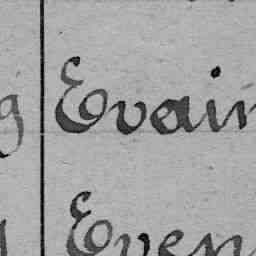 g Evain
Even